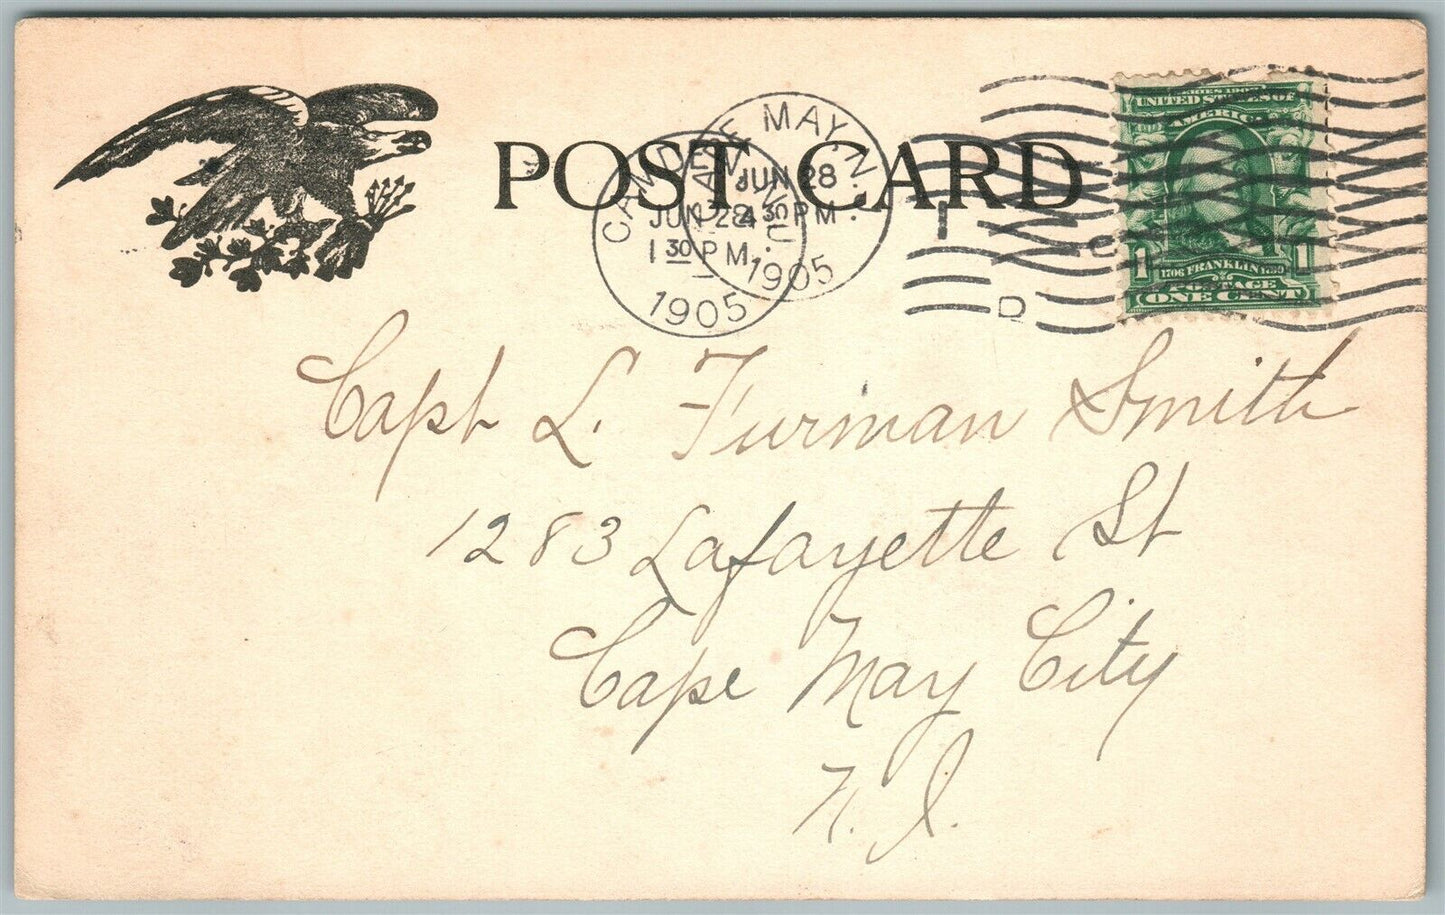 POST CARD
CAMDEN, N.J.
JUN 28
1 30 PM
1905
CAPE MAY, N.J.
JUN 28
4 30 PM
1905
SERIES 1902
UNITED STATES OF
AMERICA
1706 FRANKLIN 1790
1 1
POSTAGE
ONE CENT
1
C
D
Capt L. Furman Smith
1283 Lafayette St
Cape May City
N. J.